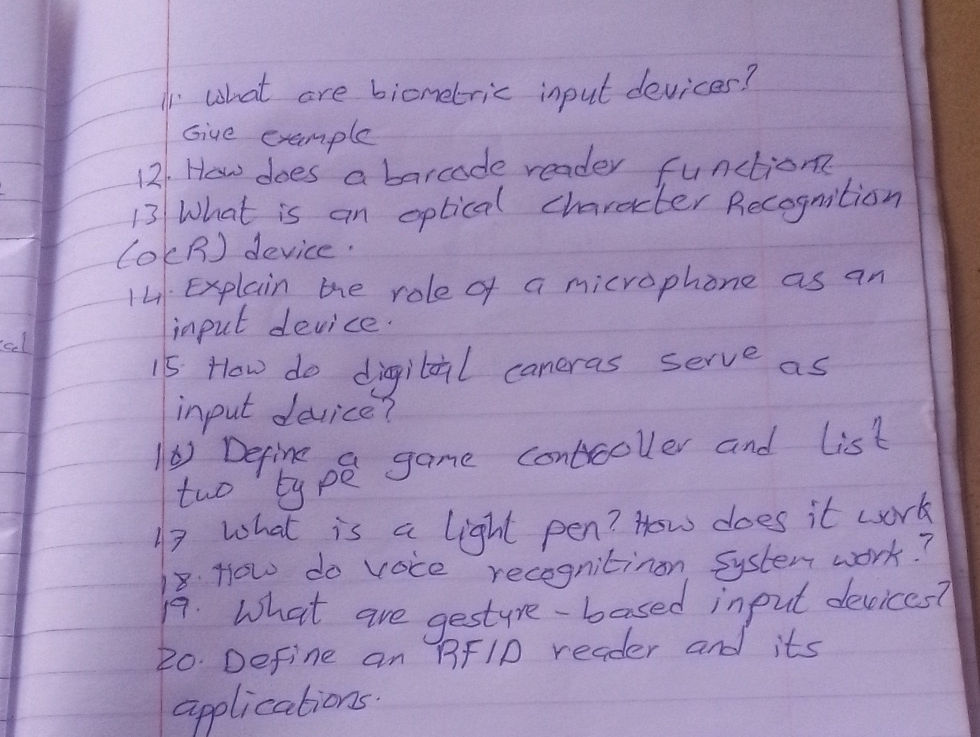 11. What are biometric input devices?
Give example
12. How does a barcode reader function?
13 What is an optical character Recognition
(OCR) device.
14. Explain the role of a microphone as an
input device.
15. How do digital cameras serve as
input device?
16) Define a game controoller and list
two type
17 What is a light pen? How does it work
18. How do voice recognitinon system work?
19. What are gesture-based input devices?
20. Define an RFID reader and its
applications.